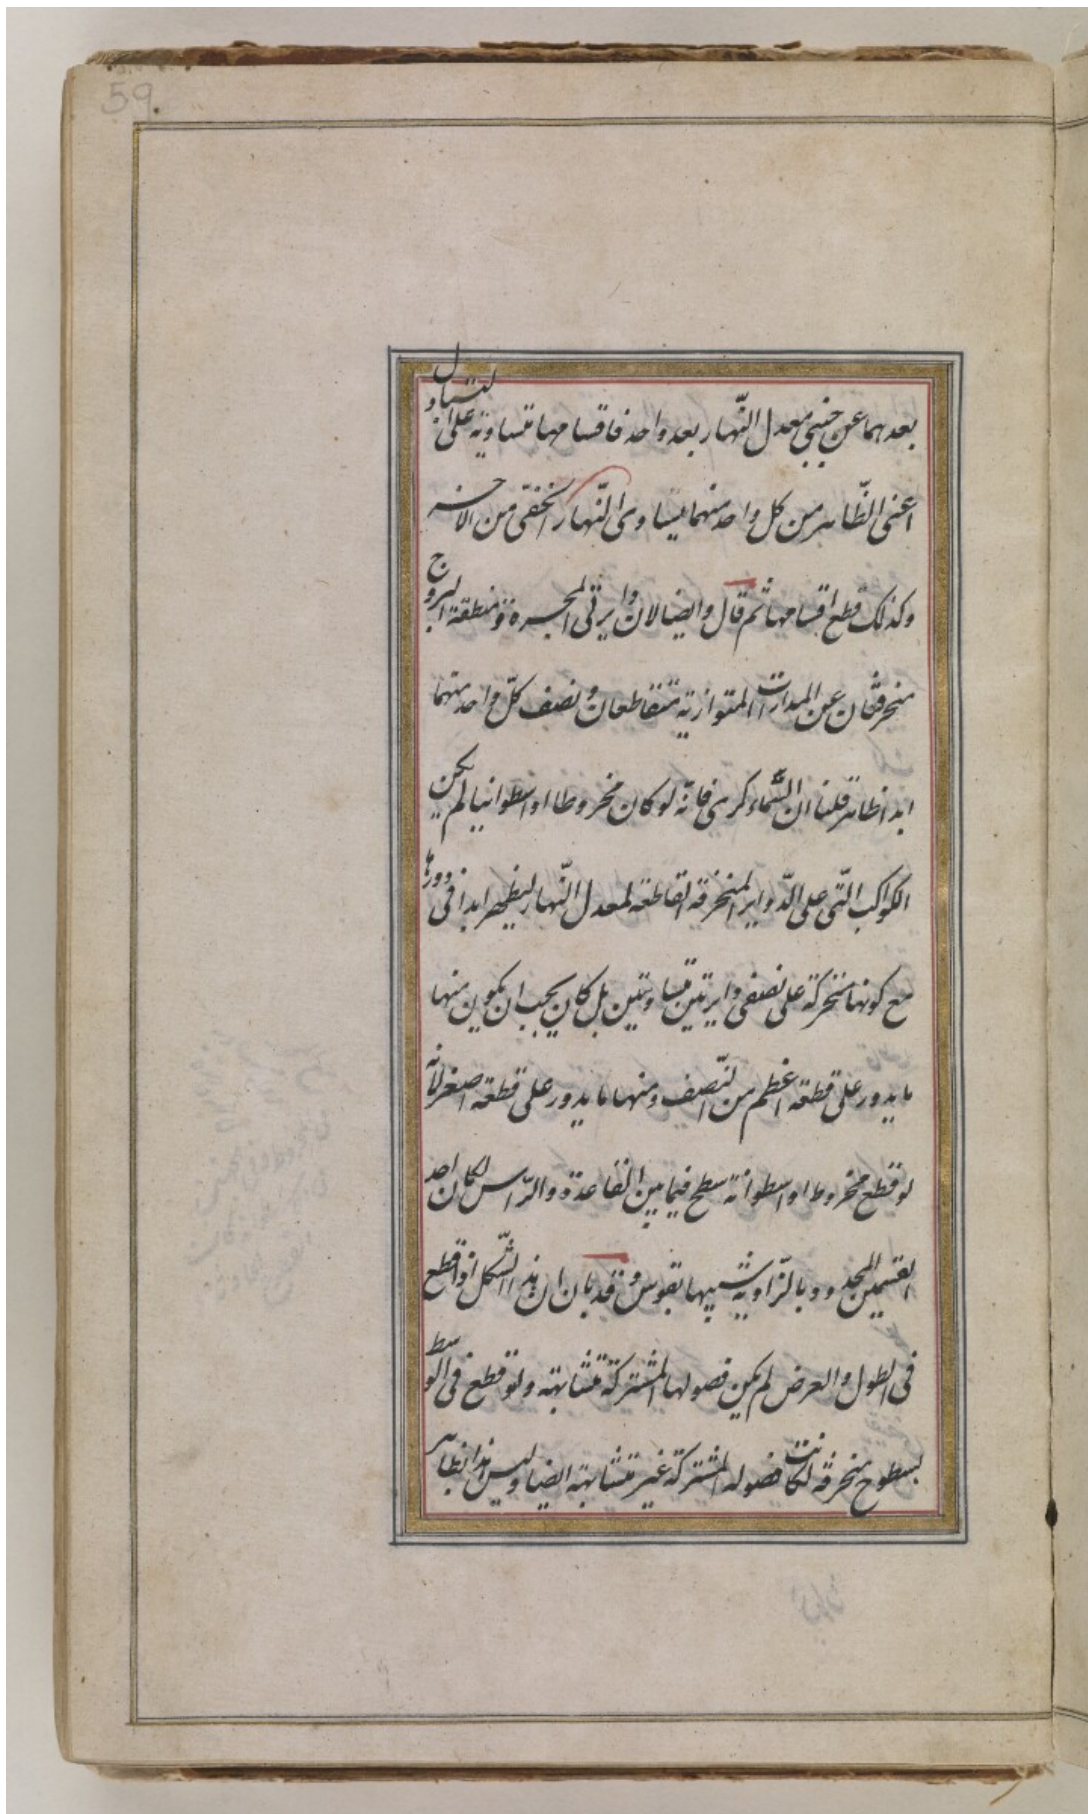 59.
بعدهما عن جنبتي معدل النّهار بعد واحد فاقسامهما متساوية على التساوى
اعنى الظّاهر من كل واحد منهما يساوى النّهار الخفى من الاخر
وكذلك قطع اقسامها ثم قال وايضا لان دايرتى المجرة ومنطقة البروج
منحرفتان عن المدارات المتوازية تتقاطعان ونصف كلّ واحد منهما
ابدا ظاهر قلنا ان السّماء كرى فانه لو كان مخروطا او اسطوانيا لم يكن
الكواكب الّتى على الدّواير المنحرفة القاطعة لمعدل النّهار ليظهر ابدا فى دورها
مع كونها متحركة على نصفى دايرتين متساويتين بل كان يجب ان يكون منها
ما يدور على قطعة اعظم من النّصف ومنها ما يدور على قطعة اصغر لانه
لو قطع مخروط او اسطوانة سطح فيما بين القاعدة والرّاس لكان احد
القسمين المحدود بالزّاوية شبيها بقوس وقد بان ان هذا الشّكل اذا قطع
فى الطول والعرض لم يكن فصولها المشتركة متشابهة ولو قطع فى الوسط
بسطوح منحرفة لكانت فصوله المشتركة غير متشابهة ايضا وليس هذا بظاهر